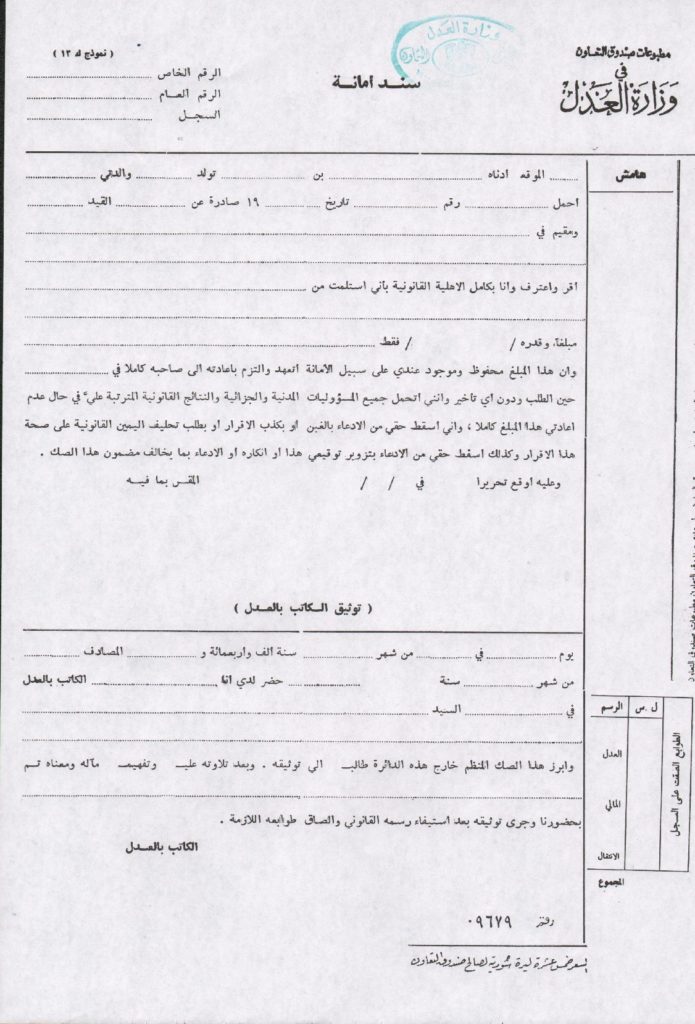 مطبوعات صندوق التعاون
في
وزارة العدل
وزارة العدل
التعاون
( نموذج ك ١٣ )
سند امانة
الرقم الخاص
الرقم العـام
السجل
هامش
الموقع ادناه بن تولد والدتي
احمل رقم تاريخ ١٩ صادرة عن القيد
ومقيم في
اقر واعترف وانا بكامل الاهلية القانونية بأني استلمت من
مبلغاً وقدره / / فقط
وان هذا المبلغ محفوظ وموجود عندي على سبيل الأمانة اتعهد والتزم باعادته الى صاحبه كاملا في
حين الطلب ودون اي تاخير وانني اتحمل جميع المسؤوليات المدنية والجزائية والنتائج القانونية المترتبة عليَّ في حال عدم
اعادتي هذا المبلغ كاملا ، واني اسقط حقي من الادعاء بالغبن او بكذب الاقرار او بطلب تحليف اليمين القانونية على صحة
هذا الاقرار وكذلك اسقط حقي من الادعاء بتزوير توقيعي هذا او انكاره او الادعاء بما يخالف مضمون هذا الصك .
وعليه أوقع تحريرا في / / المقـر بما فيـه
( توثيق الكاتب بالعدل )
يوم في من شهر سنة الف واربعمائة و المصادف
من شهر سنة حضر لدي انا الكاتب بالعدل
في السيد
وابرز هذا الصك المنظم خارج هذه الدائرة طالبـ الي توثيقه . وبعد تلاوته عليـ وتفهيمـ مآله ومعناه تم
بحضورنا وجرى توثيقه بعد استيفاء رسمه القانوني والصاق طوابعه اللازمة .
الكاتب بالعـدل
الرسم ل.س
العدل
المالي
الانتقال
المجموع
الطوابع الصقت على السجل
دفتر ٠٩٦٧٩
بسعر خمس عشرة ليرة سورية لصالح صندوق التعاون